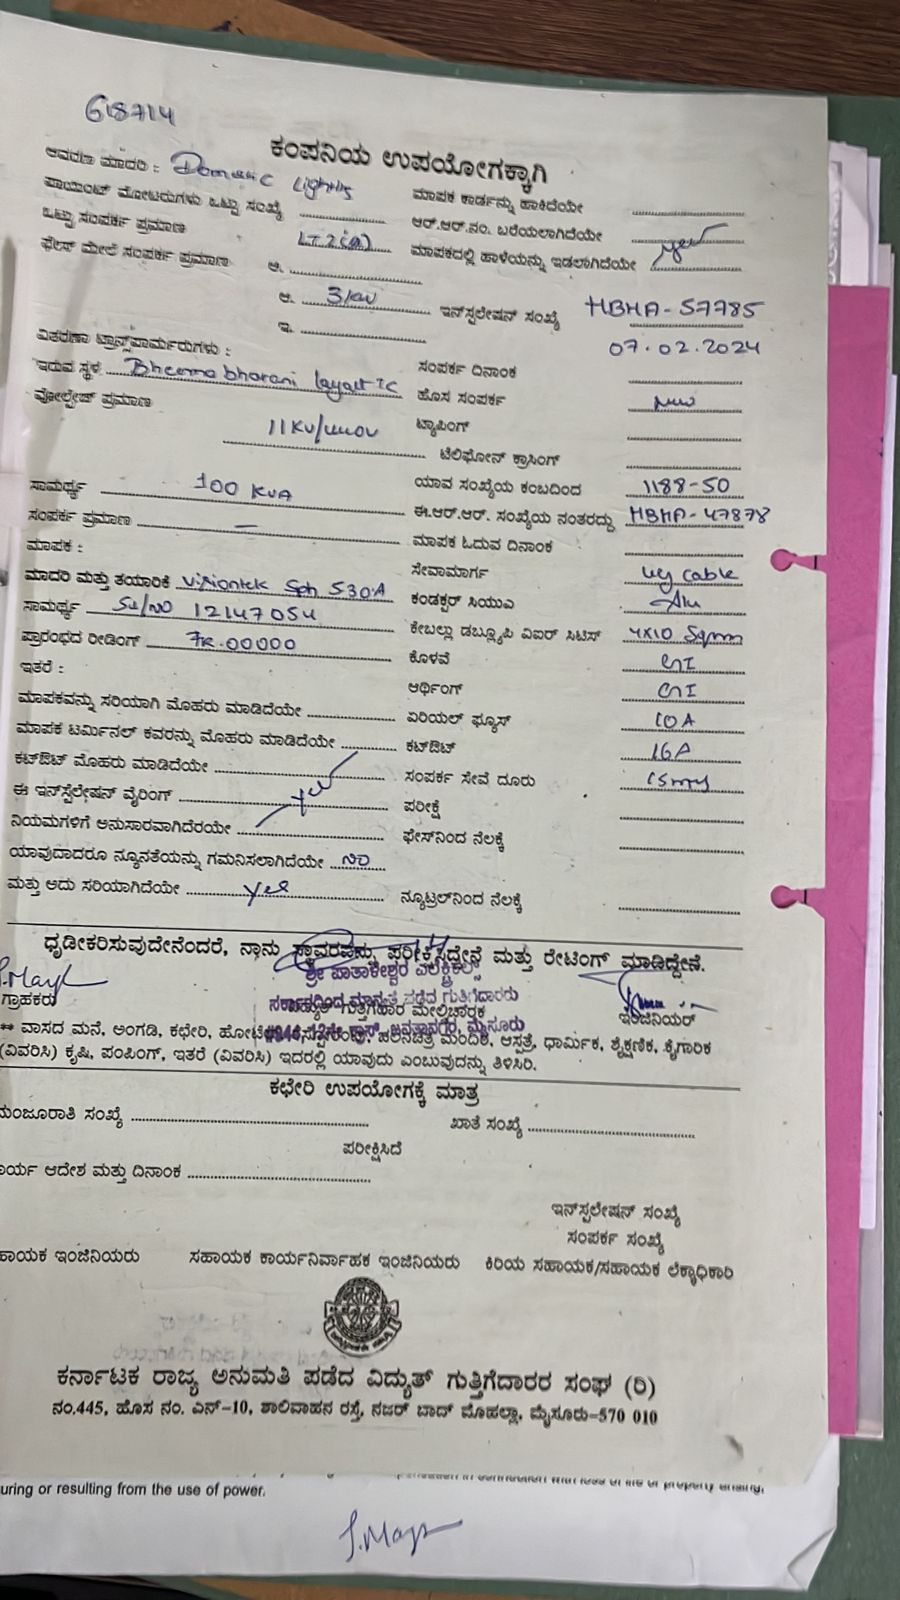 618714
ಕಂಪನಿಯ ಉಪಯೋಗಕ್ಕಾಗಿ
ಆವರಣ ಮಾದರಿ : Domestic Lighting ಮಾಪಕ ಕಾರ್ಡನ್ನು ಹಾಕಿದೆಯೇ
ಪಾಯಿಂಟ್ ಮೋಟರುಗಳು ಒಟ್ಟು ಸಂಖ್ಯೆ ಆರ್.ಆರ್.ನಂ. ಬರೆಯಲಾಗಿದೆಯೇ
ಒಟ್ಟು ಸಂಪರ್ಕ ಪ್ರಮಾಣ LT2(a) ಮಾಪಕದಲ್ಲಿ ಹಾಳೆಯನ್ನು ಇಡಲಾಗಿದೆಯೇ yes
ಫೇಸ್ ಮೇಲೆ ಸಂಪರ್ಕ ಪ್ರಮಾಣ ಅ.
ಆ. 3KW ಇನ್‌ಸ್ಟಲೇಷನ್ ಸಂಖ್ಯೆ HBHA-57785
ಇ. 07.02.2024
ವಿತರಣಾ ಟ್ರಾನ್ಸ್‌ಫಾರ್ಮರುಗಳು : ಸಂಪರ್ಕ ದಿನಾಂಕ
ಇರುವ ಸ್ಥಳ Bheema bharani layout TC ಹೊಸ ಸಂಪರ್ಕ new
ವೋಲ್ಟೇಜ್ ಪ್ರಮಾಣ 11KV/440V ಟ್ಯಾಪಿಂಗ್
ಟೆಲಿಫೋನ್ ಕ್ರಾಸಿಂಗ್
ಸಾಮರ್ಥ್ಯ 100 KVA ಯಾವ ಸಂಖ್ಯೆಯ ಕಂಬದಿಂದ 1188-50
ಸಂಪರ್ಕ ಪ್ರಮಾಣ — ಈ.ಆರ್.ಆರ್. ಸಂಖ್ಯೆಯ ನಂತರದ್ದು HBHA-47878
ಮಾಪಕ : ಮಾಪಕ ಓದುವ ದಿನಾಂಕ
ಮಾದರಿ ಮತ್ತು ತಯಾರಿಕೆ Visiontek Sph 530A ಸೇವಾಮಾರ್ಗ ug cable
ಸಾಮರ್ಥ್ಯ Sl/NO 12147054 ಕಂಡಕ್ಟರ್ ಸಿಯುಎ Alu
ಪ್ರಾರಂಭದ ರೀಡಿಂಗ್ 7R.00000 ಕೇಬಲ್ಲು ಡಬ್ಲ್ಯೂಪಿ ವಿಐರ್ ಸಿಟಿಸ್ 4X10 Sqmm
ಇತರೆ : ಕೊಳವೆ GI
ಆರ್ಥಿಂಗ್ GI
ಮಾಪಕವನ್ನು ಸರಿಯಾಗಿ ಮೊಹರು ಮಾಡಿದೆಯೇ ಏರಿಯಲ್ ಫ್ಯೂಸ್ 10A
ಮಾಪಕ ಟರ್ಮಿನಲ್ ಕವರನ್ನು ಮೊಹರು ಮಾಡಿದೆಯೇ ಕಟ್‌ಔಟ್ 16A
ಕಟ್‌ಔಟ್ ಮೊಹರು ಮಾಡಿದೆಯೇ ಸಂಪರ್ಕ ಸೇವೆ ದೂರು 15mtrs
ಈ ಇನ್‌ಸ್ಟೆಲೇಷನ್ ವೈರಿಂಗ್ yes ಪರೀಕ್ಷೆ
ನಿಯಮಗಳಿಗೆ ಅನುಸಾರವಾಗಿದೆರಯೇ ಫೇಸ್‌ನಿಂದ ನೆಲಕ್ಕೆ
ಯಾವುದಾದರೂ ನ್ಯೂನತೆಯನ್ನು ಗಮನಿಸಲಾಗಿದೆಯೇ NO
ಮತ್ತು ಅದು ಸರಿಯಾಗಿದೆಯೇ yes ನ್ಯೂಟ್ರಲ್‌ನಿಂದ ನೆಲಕ್ಕೆ
ಧೃಡೀಕರಿಸುವುದೇನೆಂದರೆ, ನಾನು ಸ್ಥಾವರವನ್ನು ಪರೀಕ್ಷಿಸಿದ್ದೇನೆ ಮತ್ತು ರೇಟಿಂಗ್ ಮಾಡಿದ್ದೇನೆ.
ಶ್ರೀ ಪಾತಾಳೇಶ್ವರ ಎಲೆಕ್ಟ್ರಿಕಲ್ಸ್
ಸರ್ಕಾರದಿಂದ ಮಾನ್ಯತೆ ಪಡೆದ ಗುತ್ತಿಗೆದಾರರು
ಗ್ರಾಹಕರು ವಿದ್ಯುತ್ ಗುತ್ತಿಗೆದಾರ ಮೇಲ್ವಿಚಾರಕ ಇಂಜಿನಿಯರ್
** ವಾಸದ ಮನೆ, ಅಂಗಡಿ, ಕಛೇರಿ, ಚಲನಚಿತ್ರ ಮಂದಿರ, ಆಸ್ಪತ್ರೆ, ಧಾರ್ಮಿಕ, ಶೈಕ್ಷಣಿಕ, ಕೈಗಾರಿಕ
(ವಿವರಿಸಿ) ಕೃಷಿ, ಪಂಪಿಂಗ್, ಇತರೆ (ವಿವರಿಸಿ) ಇದರಲ್ಲಿ ಯಾವುದು ಎಂಬುವುದನ್ನು ತಿಳಿಸಿರಿ.
ಕಛೇರಿ ಉಪಯೋಗಕ್ಕೆ ಮಾತ್ರ
ಮಂಜೂರಾತಿ ಸಂಖ್ಯೆ ಖಾತೆ ಸಂಖ್ಯೆ
ಪರೀಕ್ಷಿಸಿದೆ
ಾರ್ಯ ಆದೇಶ ಮತ್ತು ದಿನಾಂಕ
ಇನ್‌ಸ್ಟಲೇಷನ್ ಸಂಖ್ಯೆ
ಸಂಪರ್ಕ ಸಂಖ್ಯೆ
ಹಾಯಕ ಇಂಜಿನಿಯರು ಸಹಾಯಕ ಕಾರ್ಯನಿರ್ವಾಹಕ ಇಂಜಿನಿಯರು ಕಿರಿಯ ಸಹಾಯಕ/ಸಹಾಯಕ ಲೆಕ್ಕಾಧಿಕಾರಿ
ಕರ್ನಾಟಕ ರಾಜ್ಯ ಅನುಮತಿ ಪಡೆದ ವಿದ್ಯುತ್ ಗುತ್ತಿಗೆದಾರರ ಸಂಘ (ರಿ)
ನಂ.445, ಹೊಸ ನಂ. ಎನ್-10, ಶಾಲಿವಾಹನ ರಸ್ತೆ, ನಜರ್ ಬಾದ್ ಮೊಹಲ್ಲಾ, ಮೈಸೂರು-570 010
uring or resulting from the use of power.